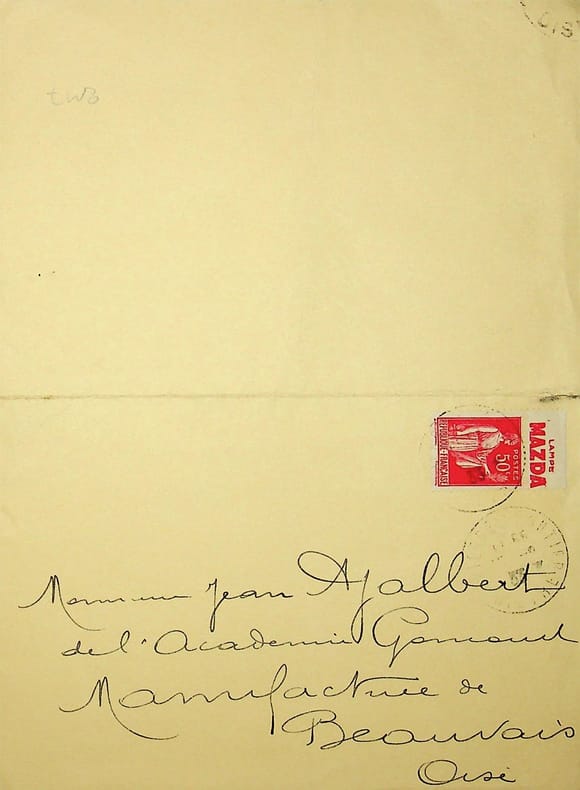 OIS
two
LAMPE
MAZDA
POSTES
50c
REPUBLIQUE-FRANÇAISE
Monsieur Jean Ajalbert
de l'Academie Goncourt
Manufacture de
Beauvais
Oise